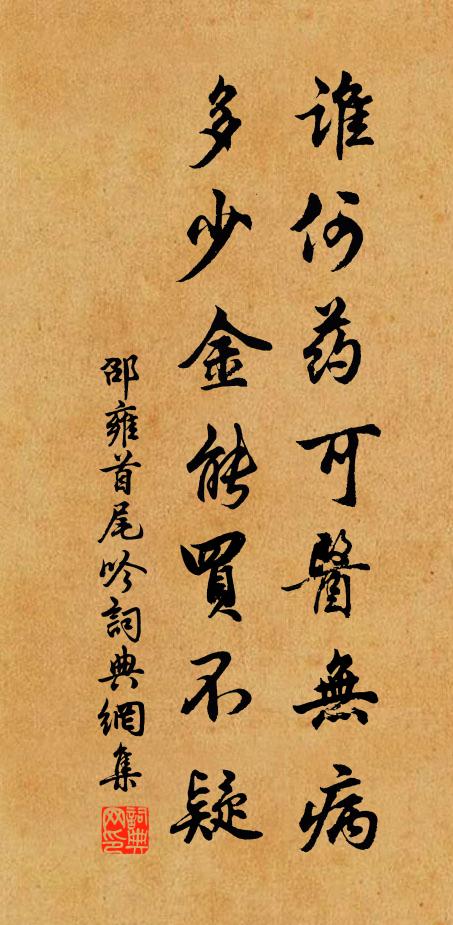 誰何药可醫無病
多少金能買不疑
邵雍首尾吟詞典網集
詞典网印